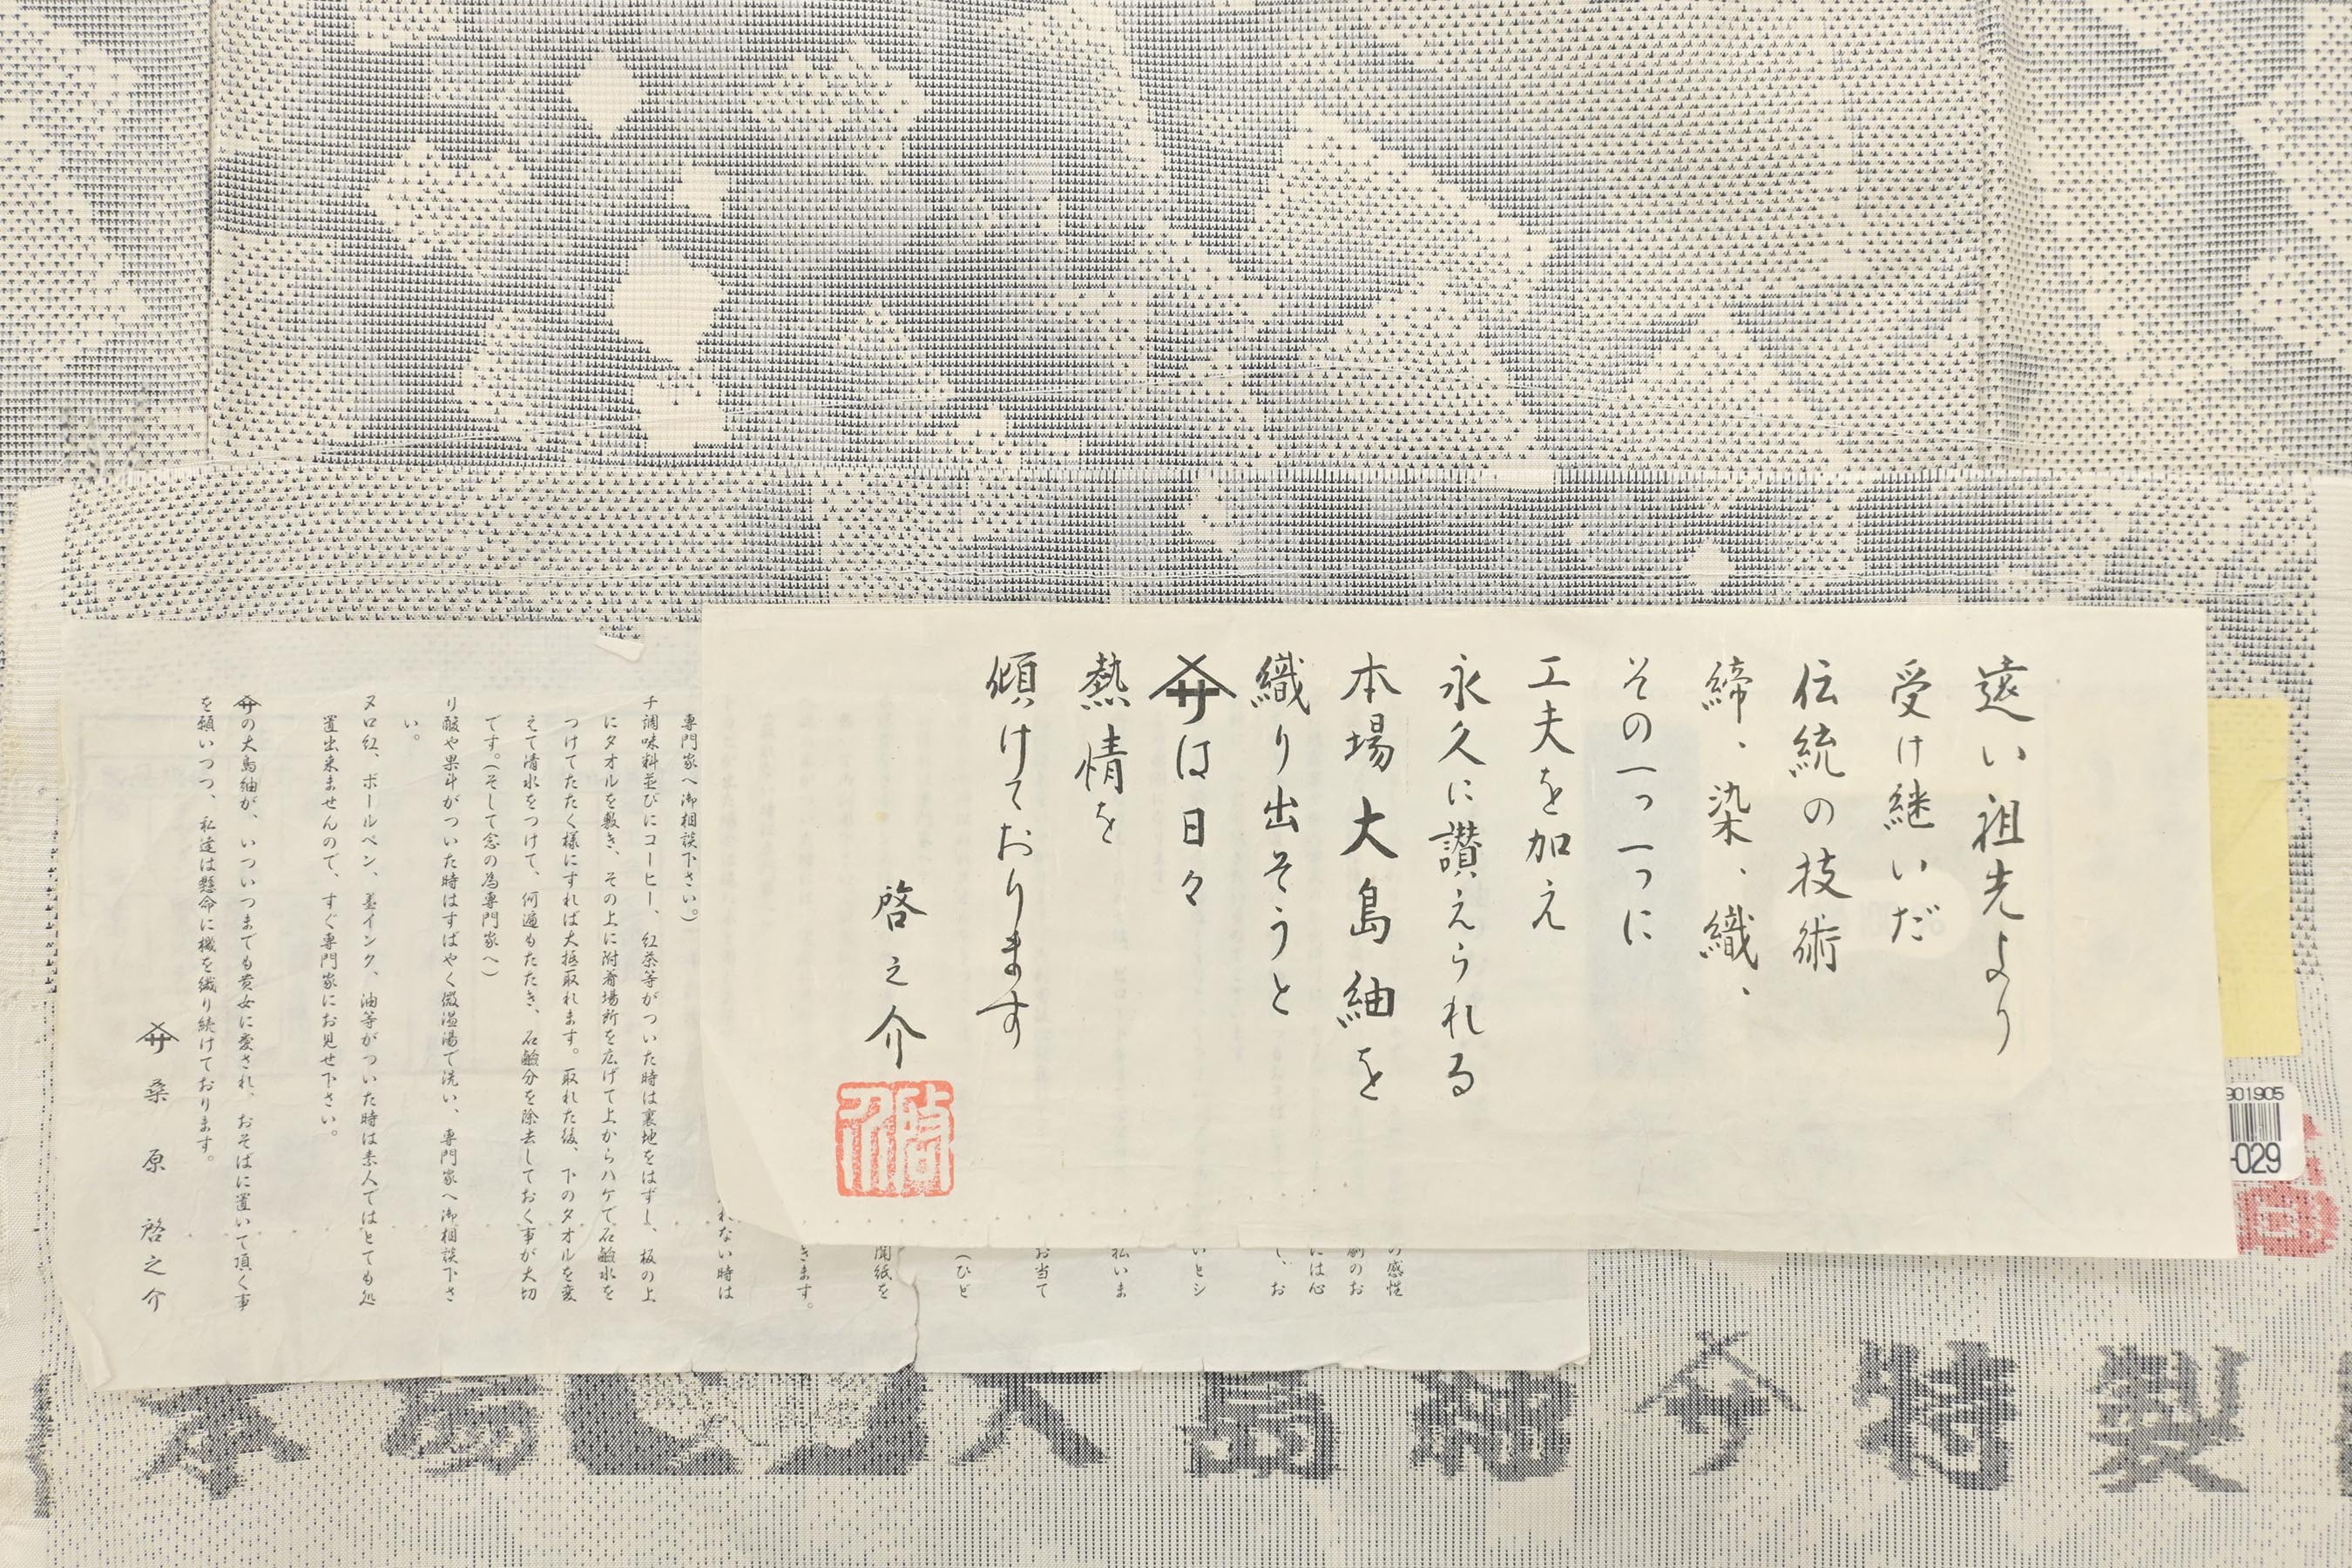 遠い祖先より
受け継いだ
伝統の技術
締、染、織、
その一つ一つに
工夫を加え
永久に讃えられる
本場大島紬を
織り出そうと
は日々
熱情を
傾けております
啓之介
の感性
には心
お
いとシ
私いま
お当て
(ひど
聞紙を
きます。
れない時は
専門家へ御相談下さい。)
チ調味料並びにコーヒー、紅茶等がついた時は裏地をはずし、板の上
にタオルを敷き、その上に附着場所を広げて上からハケで石鹸水を
つけてたたく様にすれば大抵取れます。取れた後、下のタオルを変
えて清水をつけて、何遍もたたき、石鹸分を除去しておく事が大切
です。(そして念の為専門家へ)
リ酸や果汁がついた時はすばやく微温湯で洗い、専門家へ御相談下さ
い。
ヌ口紅、ボールペン、墨インク、油等がついた時は素人ではとても処
置出来ませんので、すぐ専門家にお見せ下さい。
の大島紬が、いついつまでも貴女に愛され、おそばに置いて頂く事
を願いつつ、私達は懸命に機を織り続けております。
桑原 啓之介
901905
-029
本場大島紬 特製